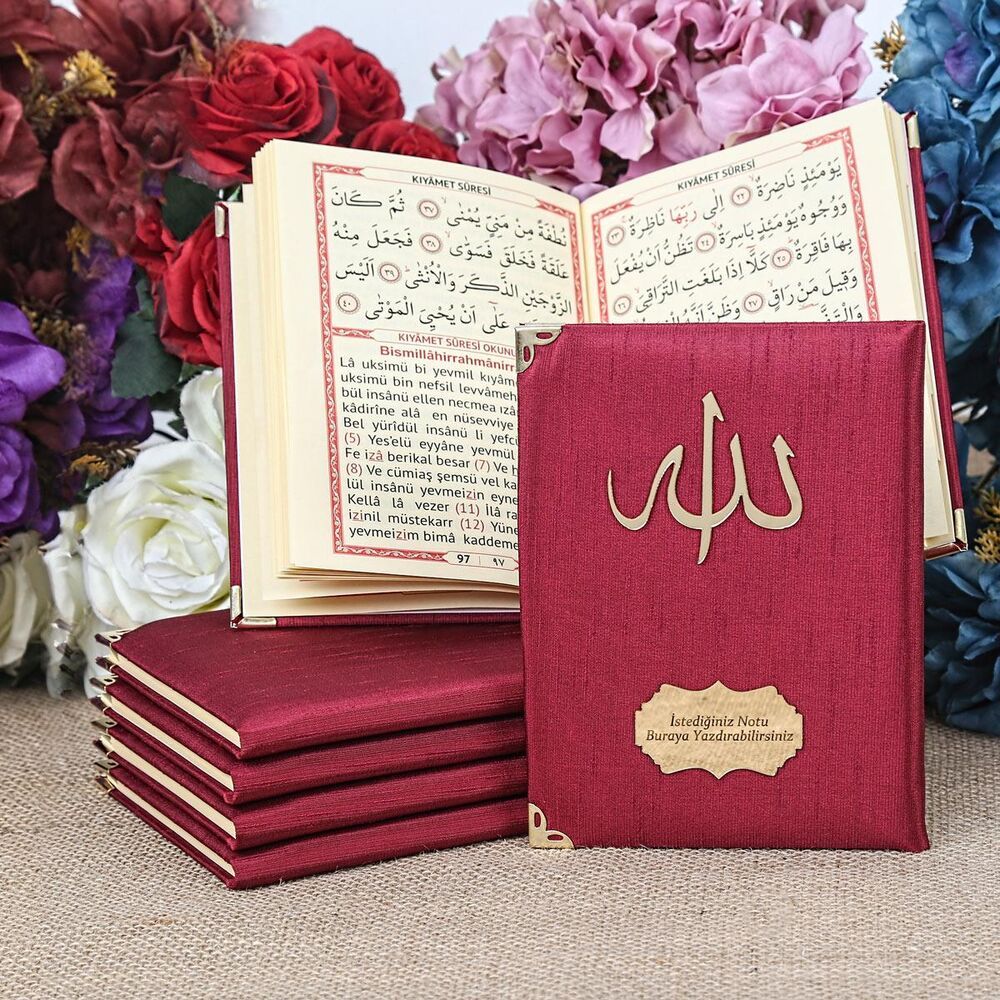 KIYÂMET SÛRESİ
نُطْفَةً مِنْ مَنِيٍّ يُمْنٰىۙ ﴿٣٧﴾ ثُمَّ كَانَ
عَلَقَةً فَخَلَقَ فَسَوّٰىۙ ﴿٣٨﴾ فَجَعَلَ مِنْهُ
الزَّوْجَيْنِ الذَّكَرَ وَالْاُنْثٰىۜ ﴿٣٩﴾ اَلَيْسَ
عَلٰٓى اَنْ يُحْيِيَ الْمَوْتٰى ﴿٤٠﴾
KIYÂMET SÛRESİ OKUNU
Bismillâhirrahmânirr
Lâ uksimü bi yevmil kıyâme
uksimü bin nefsil levvâmeh
bül insânü ellen necmea ızâ
kâdirîne alâ en nüsevviye
Bel yürîdül insânü li yefcü
(5) Yes'elü eyyâne yevmül
Fe izâ berikal besar (7) Ve h
(8) Ve cümiaş şemsü vel ka
lül insânü yevmeizin eyne
Kellâ lâ vezer (11) İlâ ra
izinil müstekarr (12) Yüne
yevmeizim bimâ kaddeme
97 ٩٧
KIYÂMET SÛRESİ
يَوْمَئِذٍ نَاضِرَةٌۙ ﴿٢٢﴾ اِلٰى رَبِّهَا نَاظِرَةٌۚ ﴿٢٣﴾
وَوُجُوهٌ يَوْمَئِذٍ بَاسِرَةٌۙ ﴿٢٤﴾ تَظُنُّ اَنْ يُفْعَلَ
بِهَا فَاقِرَةٌۜ ﴿٢٥﴾ كَلَّٓا اِذَا بَلَغَتِ التَّرَاقِيَۙ ﴿٢٦﴾
وَقٖيلَ مَنْ رَاقٍۙ ﴿٢٧﴾ وَظَنَّ اَنَّهُ
الله
İstediğiniz Notu
Buraya Yazdırabilirsiniz